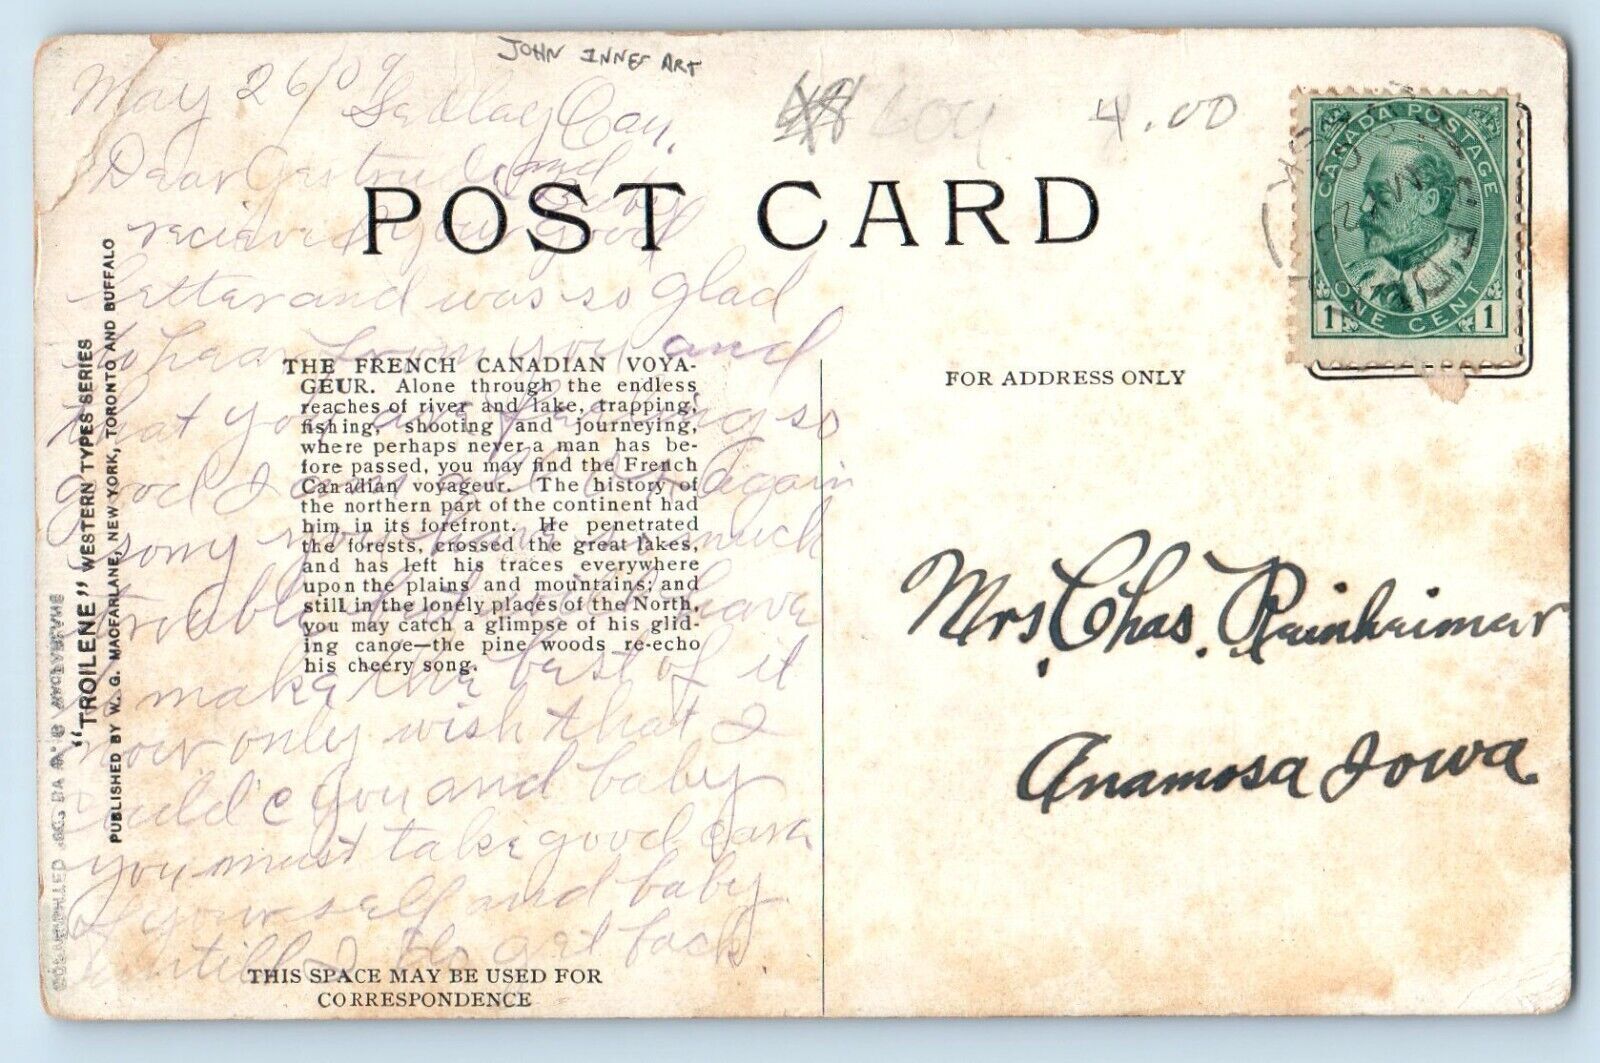 JOHN INNES ART
May 26/09
Sedlay Can.
4.00
Dear Gertrude and
baby
recieved your good
letter and was so glad
to hear from you and
that you are feeling so
good I am
again
sorry you have so much
trouble but will have
to make the best of it
now only wish that I
could c you and baby
you must take good care
of yourself and baby
untill I do get back
POST CARD
THE FRENCH CANADIAN VOYA-
GEUR. Alone through the endless
reaches of river and lake, trapping,
fishing, shooting and journeying,
where perhaps never a man has be-
fore passed, you may find the French
Canadian voyageur. The history of
the northern part of the continent had
him in its forefront. He penetrated
the forests, crossed the great lakes,
and has left his traces everywhere
upon the plains and mountains; and
still in the lonely places of the North,
you may catch a glimpse of his glid-
ing canoe—the pine woods re-echo
his cheery song.
THIS SPACE MAY BE USED FOR
CORRESPONDENCE
"TROILENE" WESTERN TYPES SERIES
PUBLISHED BY W. G. MACFARLANE, NEW YORK, TORONTO AND BUFFALO
FOR ADDRESS ONLY
CANADA POSTAGE
ONE CENT
1 1
Mrs. Chas. Rainheimer
Anamosa Iowa